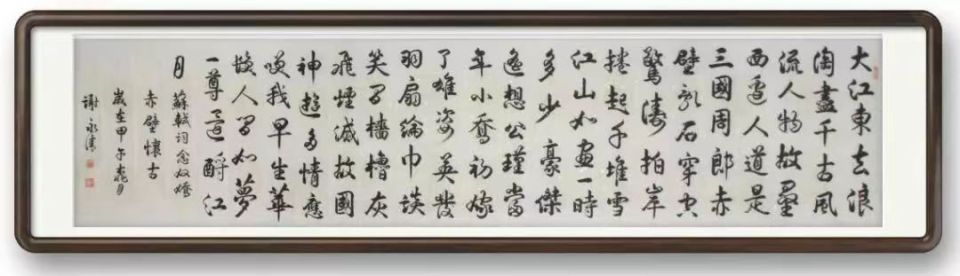 大江東去浪
淘盡千古風
流人物故壘
西邊人道是
三國周郎赤
壁亂石穿空
驚濤拍岸
捲起千堆雪
江山如畫一時
多少豪傑
遙想公瑾當
年小喬初嫁
了雄姿英發
羽扇綸巾談
笑間檣櫓灰
飛煙滅故國
神遊多情應
咲我早生華
髮人間如夢
一尊還酹江
月
蘇軾詞念奴嬌
赤壁懷古
歲在甲午
謝永